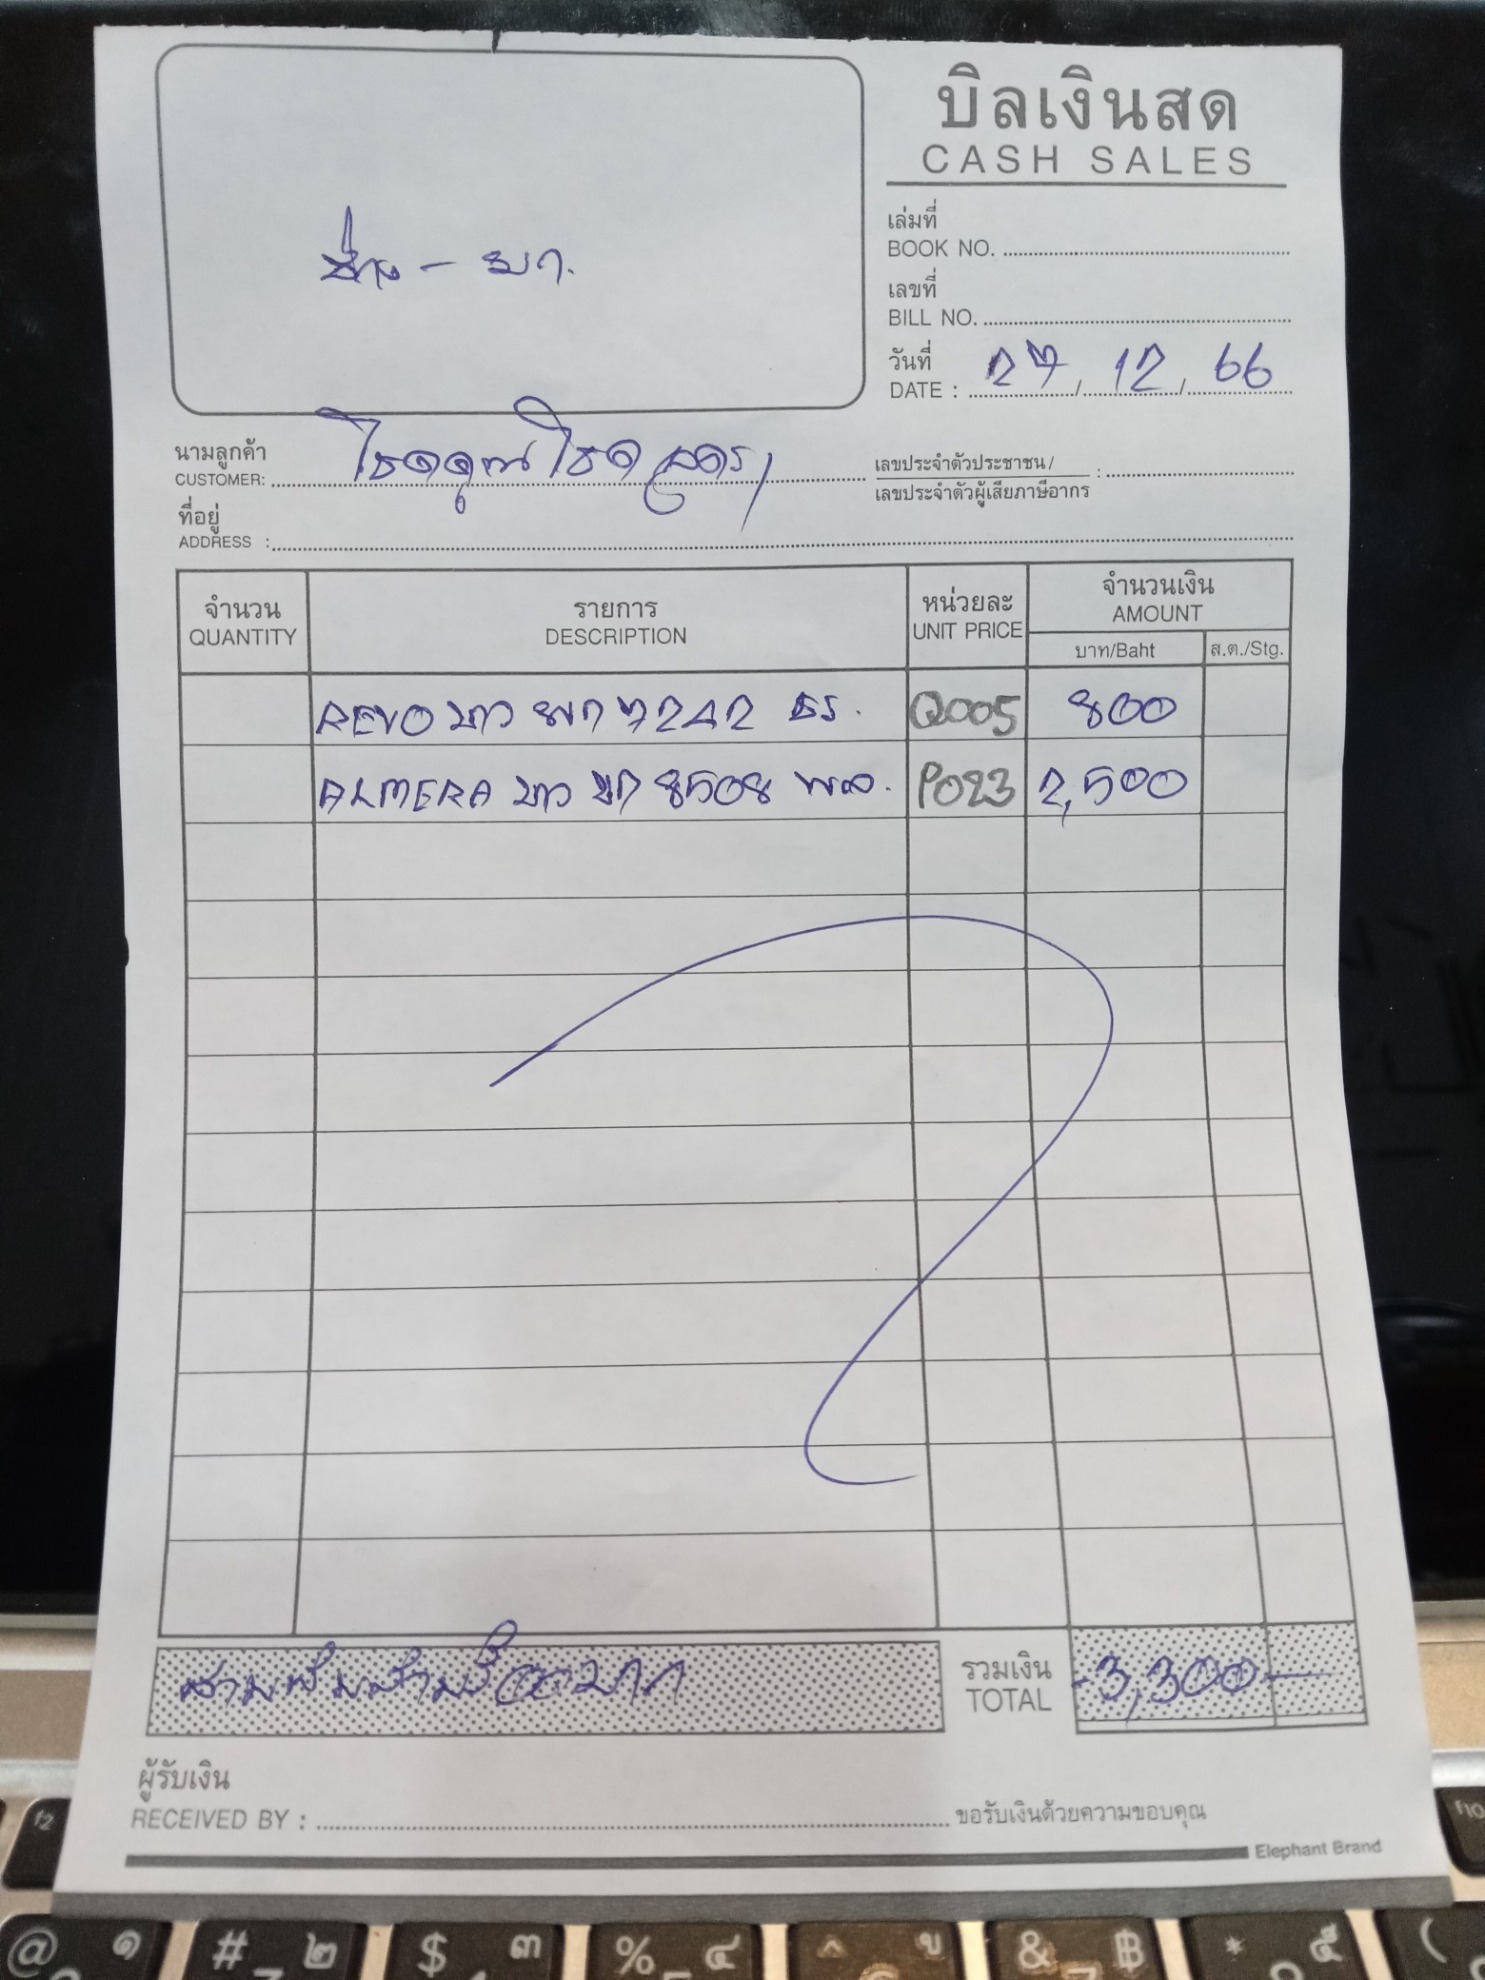 บิลเงินสด
CASH SALES
เล่มที่
BOOK NO.
เลขที่
BILL NO.
วันที่
DATE : 27 / 12 / 66
นามลูกค้า
CUSTOMER:
เลขประจำตัวประชาชน /
เลขประจำตัวผู้เสียภาษีอากร :
ที่อยู่
ADDRESS :
จำนวน รายการ หน่วยละ จำนวนเงิน
QUANTITY DESCRIPTION UNIT PRICE AMOUNT
บาท/Baht ส.ต./Stg.
REVO ขาว 7242 Q005 800
ALMERA ขาว 8508 P023 2,500
สามพันสามร้อยบาท รวมเงิน -3,300-
TOTAL
ผู้รับเงิน
RECEIVED BY : ขอรับเงินด้วยความขอบคุณ
Elephant Brand
f2 f10
@ ๑ # ๒ $ ๓ % ๔ ^ ข & ฿ * ๕ (